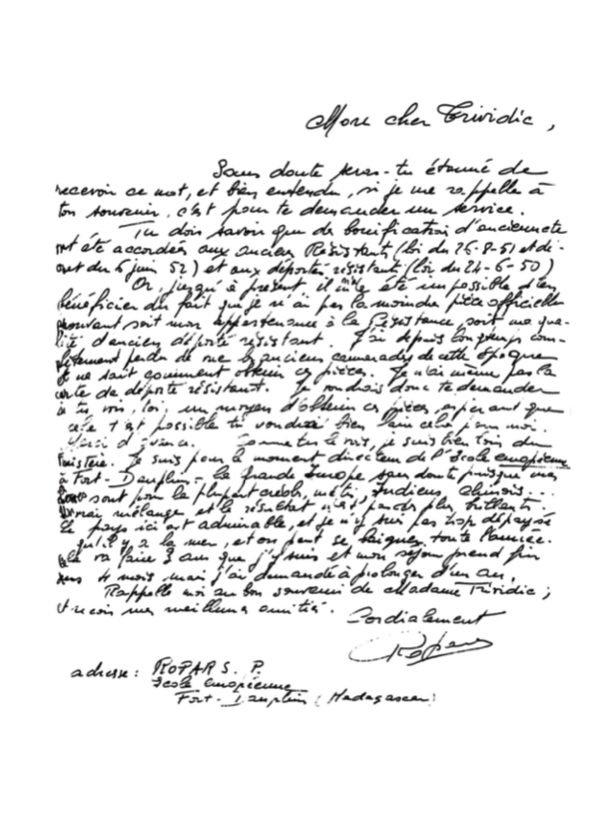 Mon cher Trividic,
Sans doute seras-tu étonné de
recevoir ce mot, et bien entendu, si je me rappelle à
ton souvenir, c'est pour te demander un service.
Tu dois savoir que de bonification d'ancienneté
ont été accordées aux anciens Résistants (loi du 26-8-51 et di-
cret du 6 juin 52) et aux déportés résistants (loi du 24-6-50)
Or, jusqu'à présent il m'a été impossible d'en
bénéficier du fait que je n'ai pas la moindre pièce officielle
prouvant soit mon appartenance à la Résistance, soit ma qua-
lité d'ancien déporté résistant. J'ai depuis longtemps com-
plètement perdu de vue les anciens camarades de cette époque
et ne sait comment obtenir ces pièces. Je n'ai même pas la
carte de déporté résistant. Je voudrais donc te demander
si tu vois, toi, un moyen d'obtenir ces pièces, espérant que
cela t'est possible tu voudras bien faire cela pour moi.
Merci d'avance. Comme tu le vois, je suis bien loin du
Finistère. Je suis pour le moment directeur de l'école européenne
à Fort-Dauphin - la grande Europe sans doute puisque mes
sont pour la plupart créoles, métis, Indiens, chinois...
vrai mélange et le résultat n'est pas des plus brillants.
Le pays ici est admirable, et je n'y suis pas trop dépaysé
qu'il y a la mer, et on peut se baigner toute l'année.
Cela va faire 3 ans que j'y suis et mon séjour prend fin
dans 4 mois mais j'ai demandé à prolonger d'un an.
Rappelle moi au bon souvenir de Madame Trividic ;
et reçois mes meilleures amitiés. Cordialement
Ropars
adresse : ROPARS. P.
Ecole européenne
Fort-Dauphin (Madagascar)